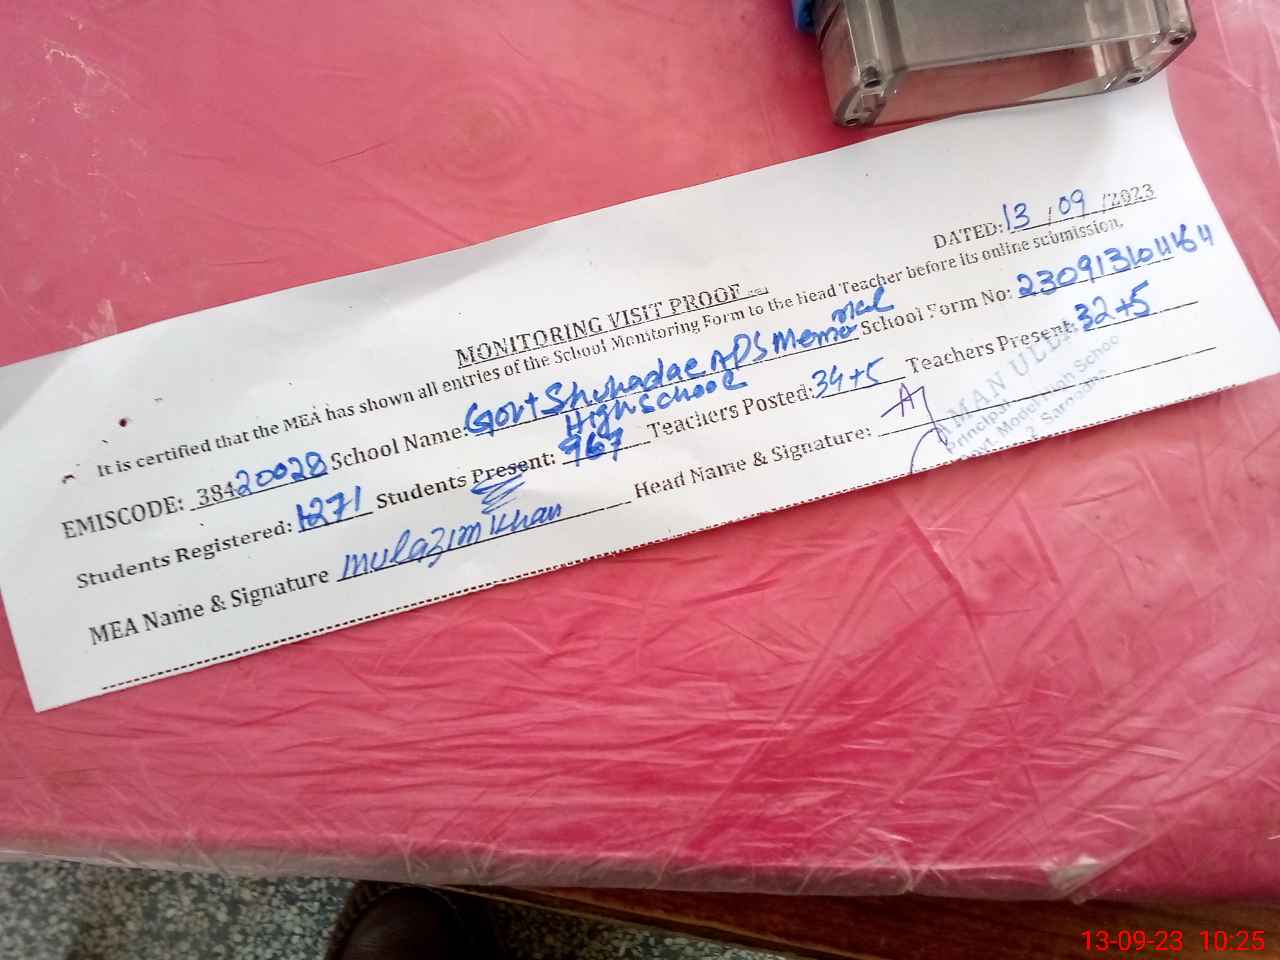 MONITORING VISIT PROOF
DATED: 13 / 09 /2023
It is certified that the MEA has shown all entries of the School Monitoring Form to the Head Teacher before its online submission.
EMISCODE: 38420028 School Name: Govt Shuhadae APS Memorial High School School Form No:
Students Registered: 1271 Students Present: 967 Teachers Posted: 34+5 Teachers Present: 32+5
MEA Name & Signature Mulazim Khan Head Name & Signature:
AMAN ULLAH
Principal
Govt. Model High School
13-09-23 10:25